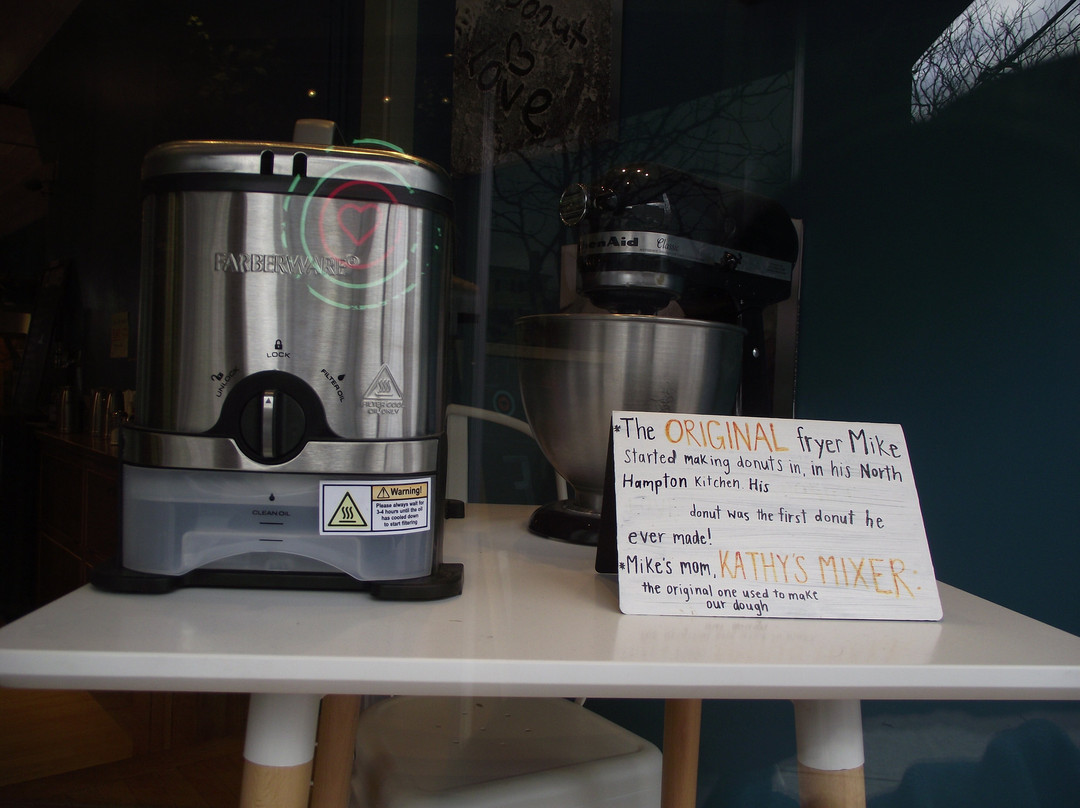 Donut
Love
FARBERWARE®
LOCK
UNLOCK
FILTER OIL
FILTER COOL
OIL ONLY
CLEAN OIL
Warning!
Please always wait for
3-4 hours until the oil
has cooled down
to start filtering
enAid Clas
*The ORIGINAL fryer Mike
started making donuts in, in his North
Hampton Kitchen. His
donut was the first donut he
ever made!
*Mike's mom, KATHY'S MIXER.
the original one used to make
our dough